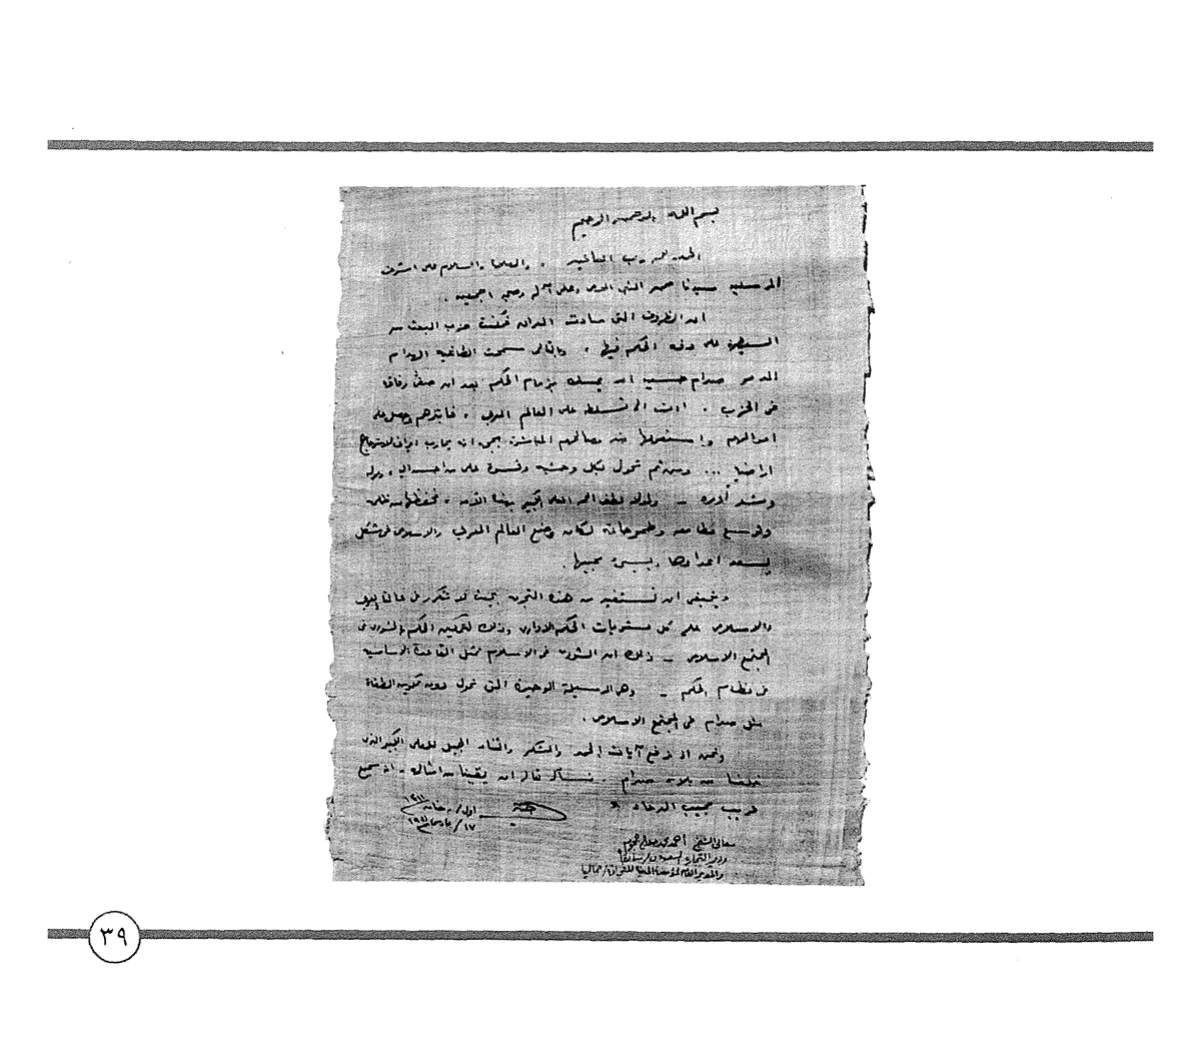 بسم الله الرحمن الرحيم
الحمد لله رب العالمين . والصلاة والسلام على اشرف
المرسلين سيدنا محمد النبي الامي وعلى آله وصحبه اجمعين .
ان الظروف التي سادت العراق مكنت حزب البعث من
السيطرة على دفة الحكم فيها ، وبالتالي سمحت الطاغية الهدام
المدعو صدام حسين ان يمسك بزمام الحكم بعد ان صفى رفاقه
في الحزب .
على العالم العربي ، فابتزهم
اموالهم مصالحهم المباشرة بحجة انه يحارب ايران
اراضيها ... ومن ثم تحول بكل وحشية وقسوة على من احسن اليه
وشد أزره - ولولا لطف الله العلي الكبير بهذه الأمة ، فحفظها من
مطامعه وطموحاته لكان وضع العالم العربي والاسلامي في شكل
يسعد اعداءها ويسيء محبيها .
وينبغي ان نستفيد من هذه التجربة بحيث لا تتكرر في عالمنا العربي
والاسلامي على كل مستويات الحكم الاداري وذلك لتمكين الحكم بالشورى في
المجتمع الاسلامي - ذلك ان الشورى في الاسلام تمثل القاعدة الاساسية
في نظام الحكم - وهي الوسيلة الوحيدة التي تحول دون تكوين الطغاة
مثل صدام في المجتمع الاسلامي .
ونحن اذ نرفع آيات الحمد والشكر والثناء الجميل للعلي الكبير الذي
خلصنا من بلاء صدام . نسأله تعالى ان يقينا من امثاله ، انه سميع
قريب مجيب الدعاء ،
١٤١١
اول / رمضان
١٧ / مارس ١٩٩١
معالي الشيخ أحمد محمد صلاح جمجوم
وزير التجارة السعودي سابقاً
والمدير العام لمؤسسة المدينة للصحافة / حالياً
٣٩